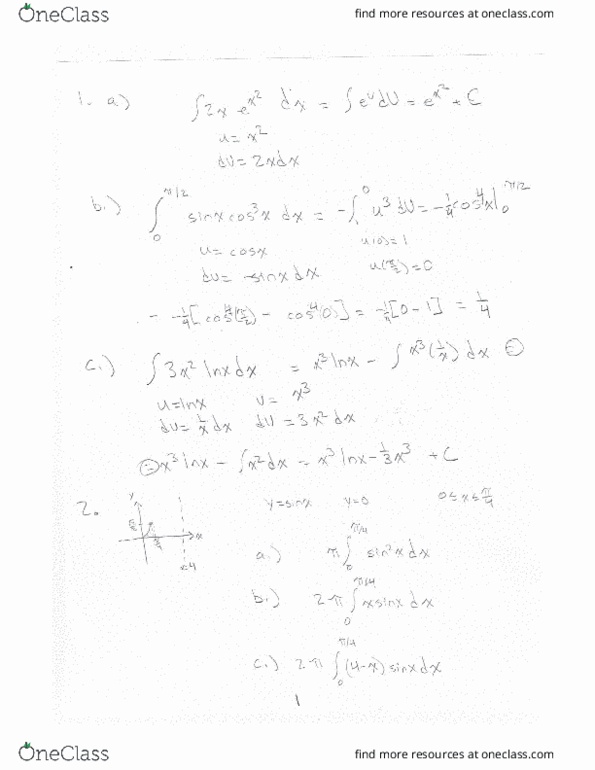 OneClass
find more resources at oneclass.com
1. a) ∫2x e^x² dx = ∫e^u dU = e^x² + C
u = x²
dU = 2xdx
b.) ∫₀^π/2 sinx cos³x dx = -∫₁⁰ u³ dU = -1/4 cos⁴x|₀^π/2
u = cosx u(0)=1
du = -sinx dx u(π/2)=0
= -1/4[cos⁴(π/2) - cos⁴(0)] = -1/4[0-1] = 1/4
c.) ∫3x² lnx dx = x³ lnx - ∫x³(1/x) dx =
u=lnx v= x³
du= 1/x dx dv = 3x² dx
= x³ lnx - ∫x² dx = x³ lnx - 1/3 x³ + C
2. y y=sinx y=0 0≤x≤π/4
x
π/4
x=4
a.) π∫₀^π/4 sin²x dx
b.) 2π∫₀^π/4 x sinx dx
c.) 2π∫₀^π/4 (4-x) sinx dx
1
OneClass
find more resources at oneclass.com